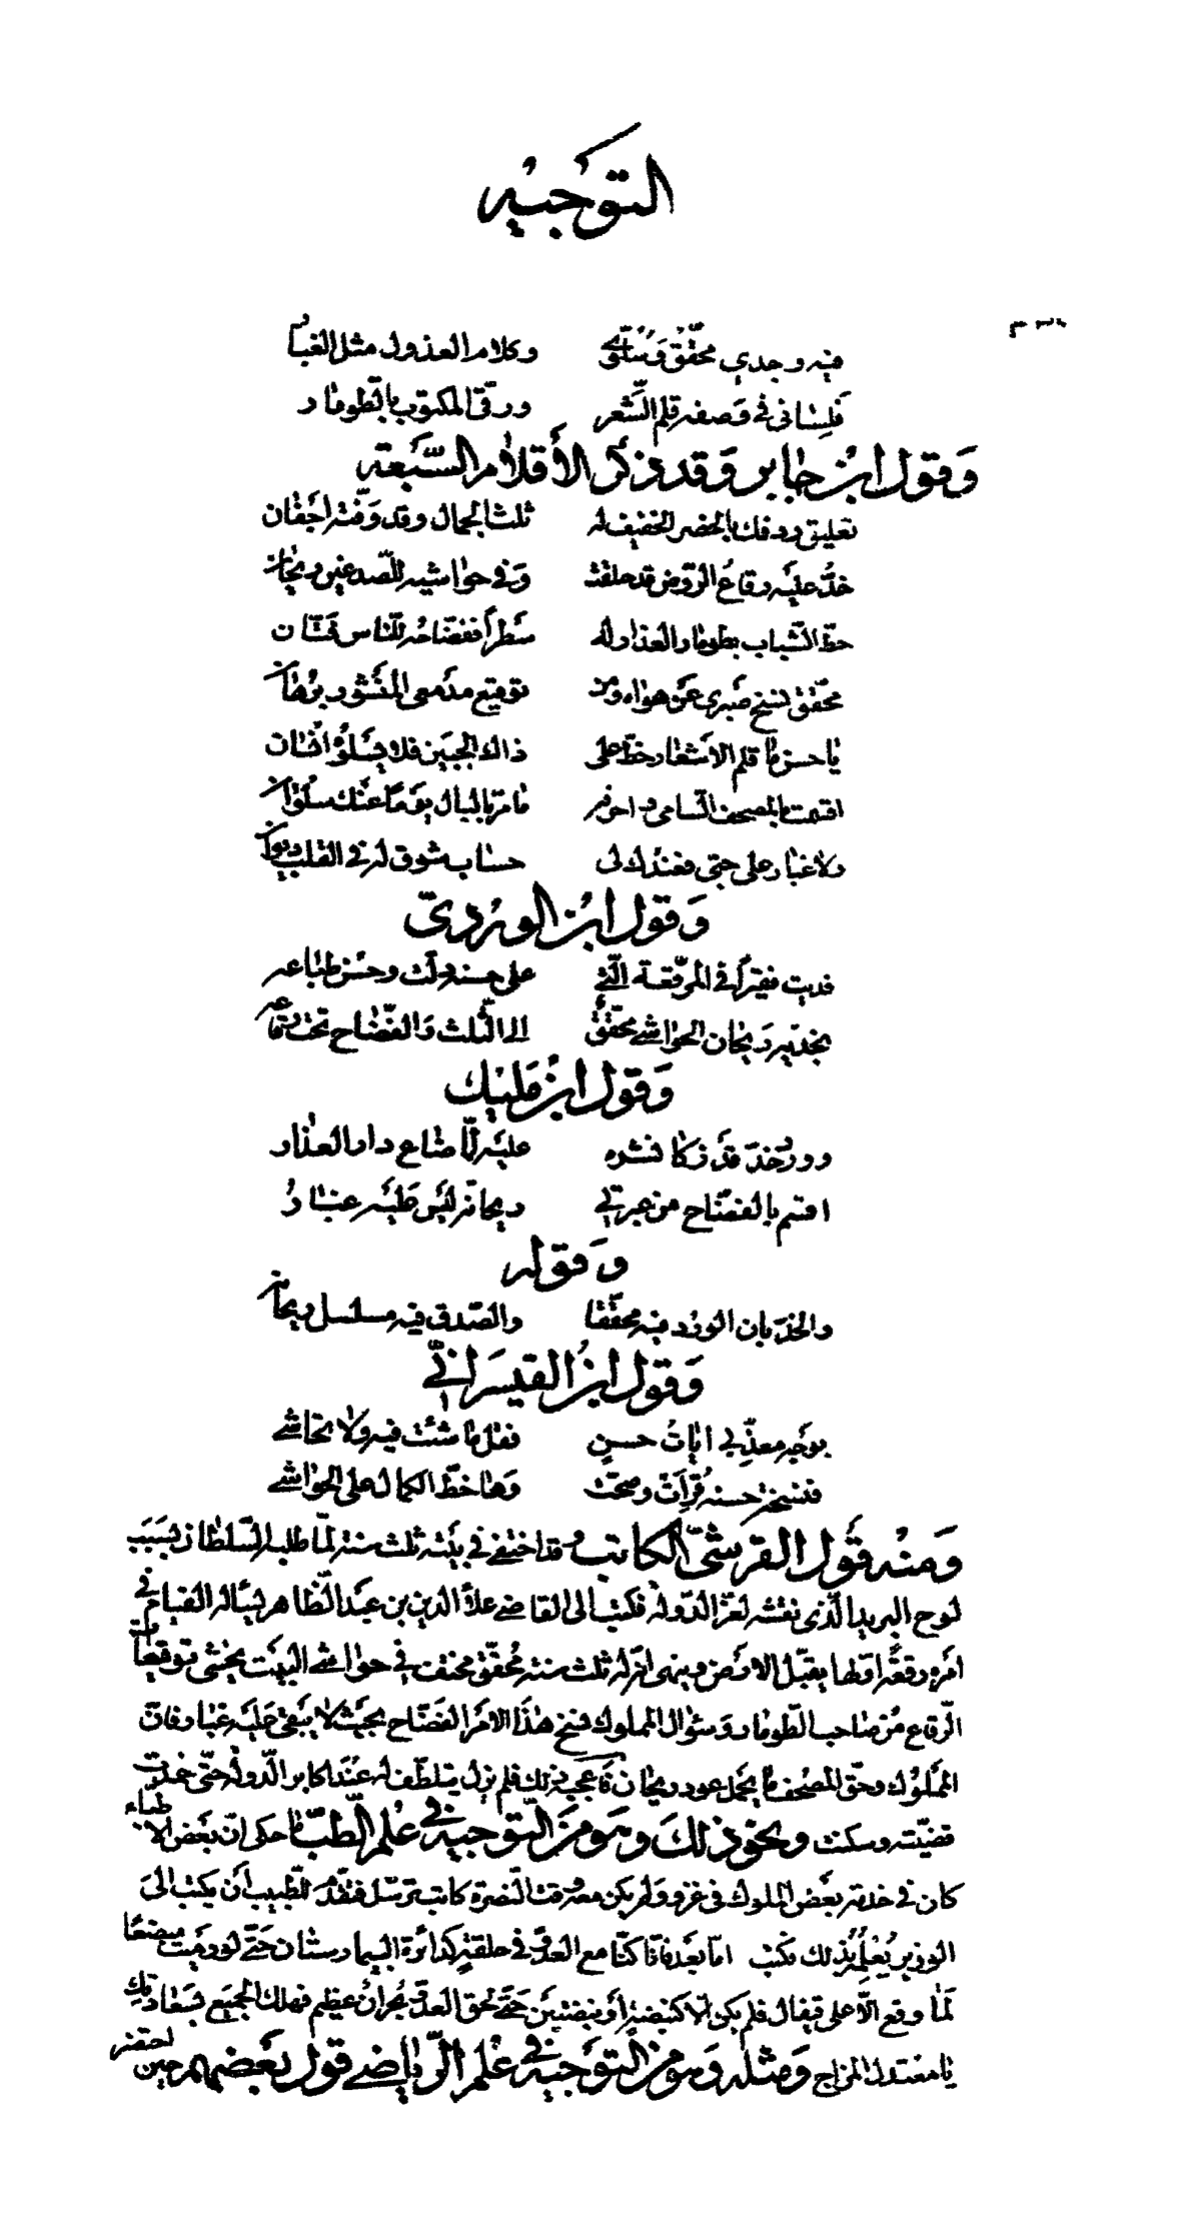 التوجيه
فيه وجدي محقق وسلوّي وكلام العذول مثل الغبار
فلساني في وصفه قلم الشعر ورقّي المكتوب بالطومار
وقول ابن جابر وقد ذكر الأقلام السبعة
تعليق ردفك بالخصر الخفيف له ثلث الجمال وقد وفّته اجفان
خدّ عليه رقاع الروض قد جعلت وفي حواشيه للصدغين ريحان
خطّ الشباب بطومار العذار له سطراً ففضّاحه للناس فتّان
محقق نسخ صبري عن هواه ومن توقيع مدمعي المنثور برهان
يا حسن ما قلم الاشعار خطّ على ذاك الجبين فلا يسلوه انسان
اقسمت بالمصحف السامي واحرفه ما مرّ بالبال يوما عنك سلوان
ولا غبار على حبّي فعندك لي حساب شوق له في القلب ديوان
وقول ابن الوردي
فديت فقيراً في المرقّعة الّتي على حسنه دلّت وحسن طباعه
بخدّيه ريحان الحواشي محقّق الى الثّلث والفضّاح تحت رقاعه
وقول ابن مليك
وورد خدّ قد زكا نشره عليه لمّا ضاع دار العذار
اقسم بالفضّاح من عبرتي ريحانه ليس عليه غبار
وقوله
والخدّ بان الورد فيه محققا والصّدق فيه مسلسل ريحانه
وقول ابن القيسراني
بوجه معذّبي ايات حسن فقل ما شئت فيه ولا تحاشي
فنسخة حسنه قرأت وصحّت وها خطّ الكمال على الحواشي
ومنه قول القرشيّ الكاتب وقد اختفى في بيته ثلث سنة لمّا طلبه السلطان بسبب
لوح البريد الّذي نقشه لعزّ الدولة فكتب الى القاضي علاء الدين بن عبد الظاهر يسأله القيام في
امره رقعة اوّلها يقبّل الارض وينهى انّه له ثلث سنة محقّق مختف في حواشي البيت يخشى توقيعات
الرّقاع من صاحب الطّومار وسؤال المملوك نسخ هذا الامر الفضّاح بحيث لا يبقى عليه غبار فانّ
المملوك وحقّ المصحف ما يحمل عود ريحان فاعجبه ذلك فلم يزل يتلطّف له عند اكابر الدّولة حتّى خمدت
قضيّته وسكنت ونحو ذلك وهو من التّوجيه في علم الطّبّ ما حكي انّ بعض الاطباء
كان في خدمة بعض الملوك في غزو ولم يكن معه وقت النّصرة كاتب ترسّل فتقدّم للطّبيب أن يكتب الى
الوزير يُعْلِمُه بذلك فكتب امّا بعد فانّا كنّا مع العدوّ في حلقة كدائرة البيمارستان حتّى لو رميت مبضعًا
لما وقع الّا على قيفال فلم يكن الّا كنبضة أو نبضتين حتّى لحق العدوّ بُحران عظيم فهلك الجميع بسعادتك
يا معتدل المزاج ومثله وهو من التوجيه في علم الرّياضي قول بعضهم حين احتضر